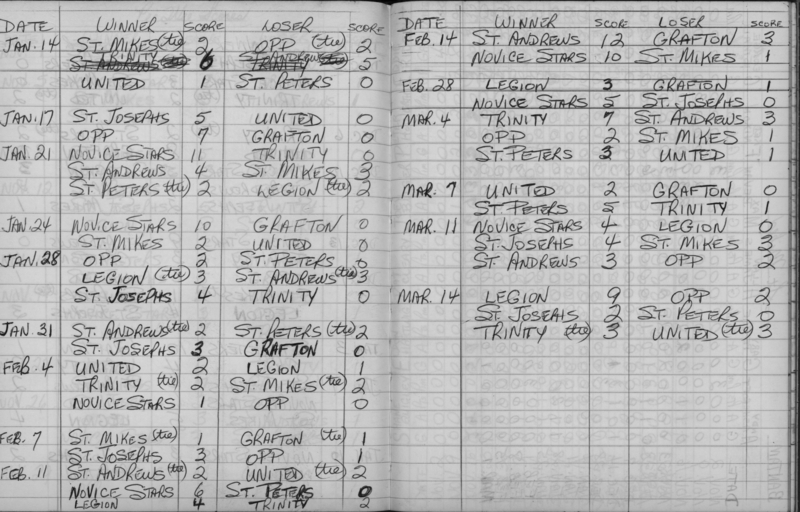 DATE WINNER SCORE LOSER SCORE
JAN. 14 ST. MIKES (tie) 2 OPP (tie) 2
TRINITY 6 ST. ANDREWS 5
UNITED 1 ST. PETERS 0
JAN. 17 ST. JOSEPHS 5 UNITED 0
OPP 7 GRAFTON 0
JAN. 21 NOVICE STARS 11 TRINITY 0
ST. ANDREWS 4 ST. MIKES 3
ST. PETERS (tie) 2 LEGION (tie) 2
JAN. 24 NOVICE STARS 10 GRAFTON 0
ST. MIKES 2 UNITED 0
JAN. 28 OPP 2 ST. PETERS 0
LEGION (tie) 3 ST. ANDREWS (tie) 3
ST. JOSEPHS 4 TRINITY 0
JAN. 31 ST. ANDREWS (tie) 2 ST. PETERS (tie) 2
ST. JOSEPHS 3 GRAFTON 0
FEB. 4 UNITED 2 LEGION 1
TRINITY (tie) 2 ST. MIKES (tie) 2
NOVICE STARS 1 OPP 0
FEB. 7 ST. MIKES (tie) 1 GRAFTON (tie) 1
ST. JOSEPHS 3 OPP 1
FEB. 11 ST. ANDREWS (tie) 2 UNITED (tie) 2
NOVICE STARS 6 ST. PETERS 0
LEGION 4 TRINITY 2
DATE WINNER SCORE LOSER SCORE
FEB. 14 ST. ANDREWS 12 GRAFTON 3
NOVICE STARS 10 ST. MIKES 1
FEB. 28 LEGION 3 GRAFTON 1
NOVICE STARS 5 ST. JOSEPHS 0
MAR. 4 TRINITY 7 ST. ANDREWS 3
OPP 2 ST. MIKES 1
ST. PETERS 3 UNITED 1
MAR. 7 UNITED 2 GRAFTON 0
ST. PETERS 5 TRINITY 1
MAR. 11 NOVICE STARS 4 LEGION 0
ST. JOSEPHS 4 ST. MIKES 3
ST. ANDREWS 3 OPP 2
MAR. 14 LEGION 9 OPP 2
ST. JOSEAHS 2 ST. PETERS 0
TRINITY (tie) 3 UNITED (tie) 3